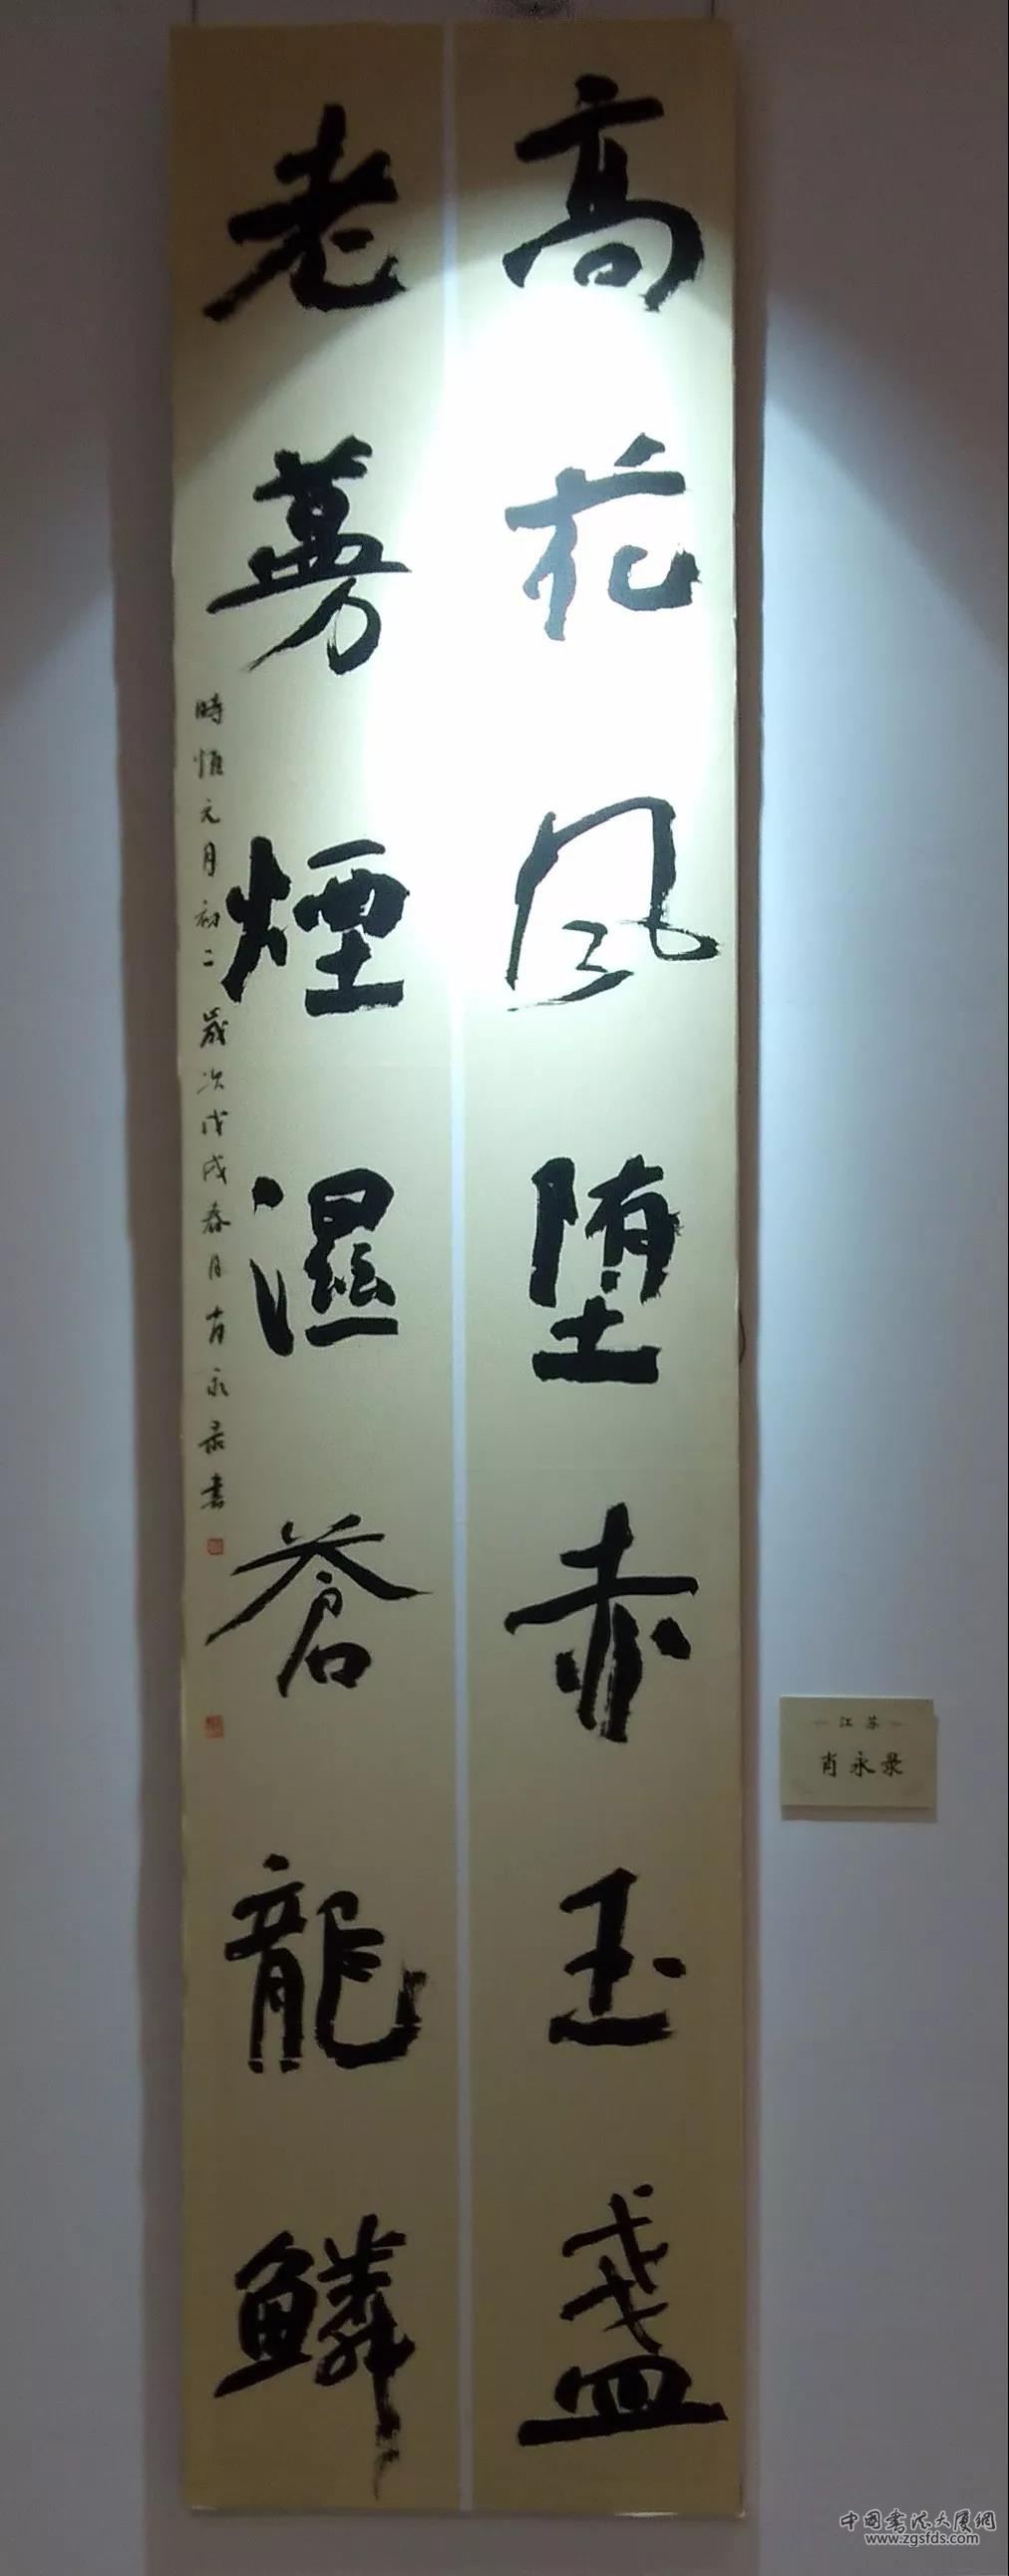 高花风堕赤玉盏
老蔓煙濕蒼龍鱗
時惟元月初二歲次戊戌春月肖永录書
江苏
肖永录
中国书法大厦网
www.zgsfds.com